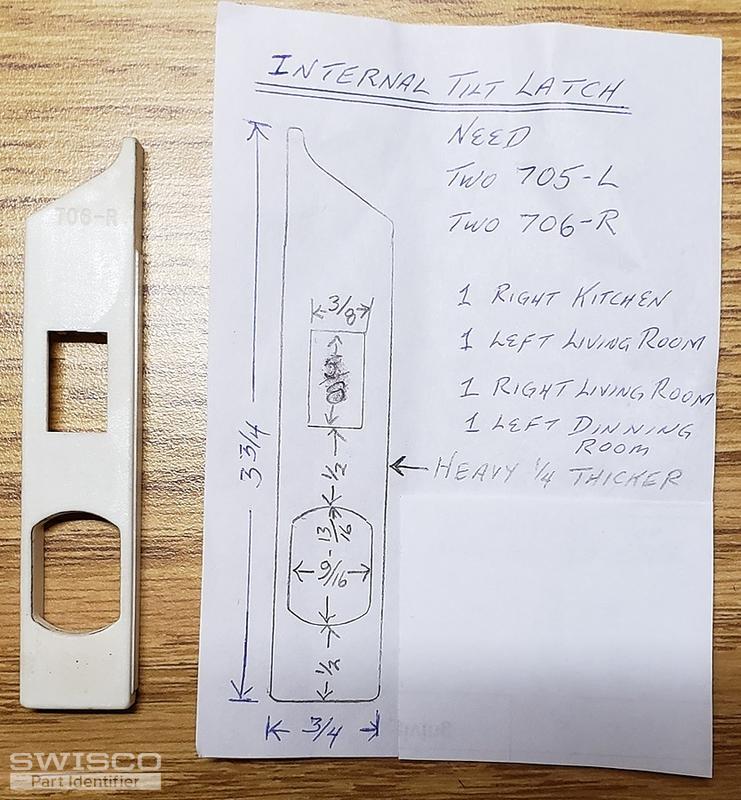 INTERNAL TILT LATCH
NEED
TWO 705-L
TWO 706-R
1 RIGHT KITCHEN
1 LEFT LIVING ROOM
1 RIGHT LIVING ROOM
1 LEFT DINNING
ROOM
HEAVY 1/4 THICKER
706-R
3/8
3 3/4
1/2
13/16
9/16
1/2
3/4
SWISCO
Part Identifier